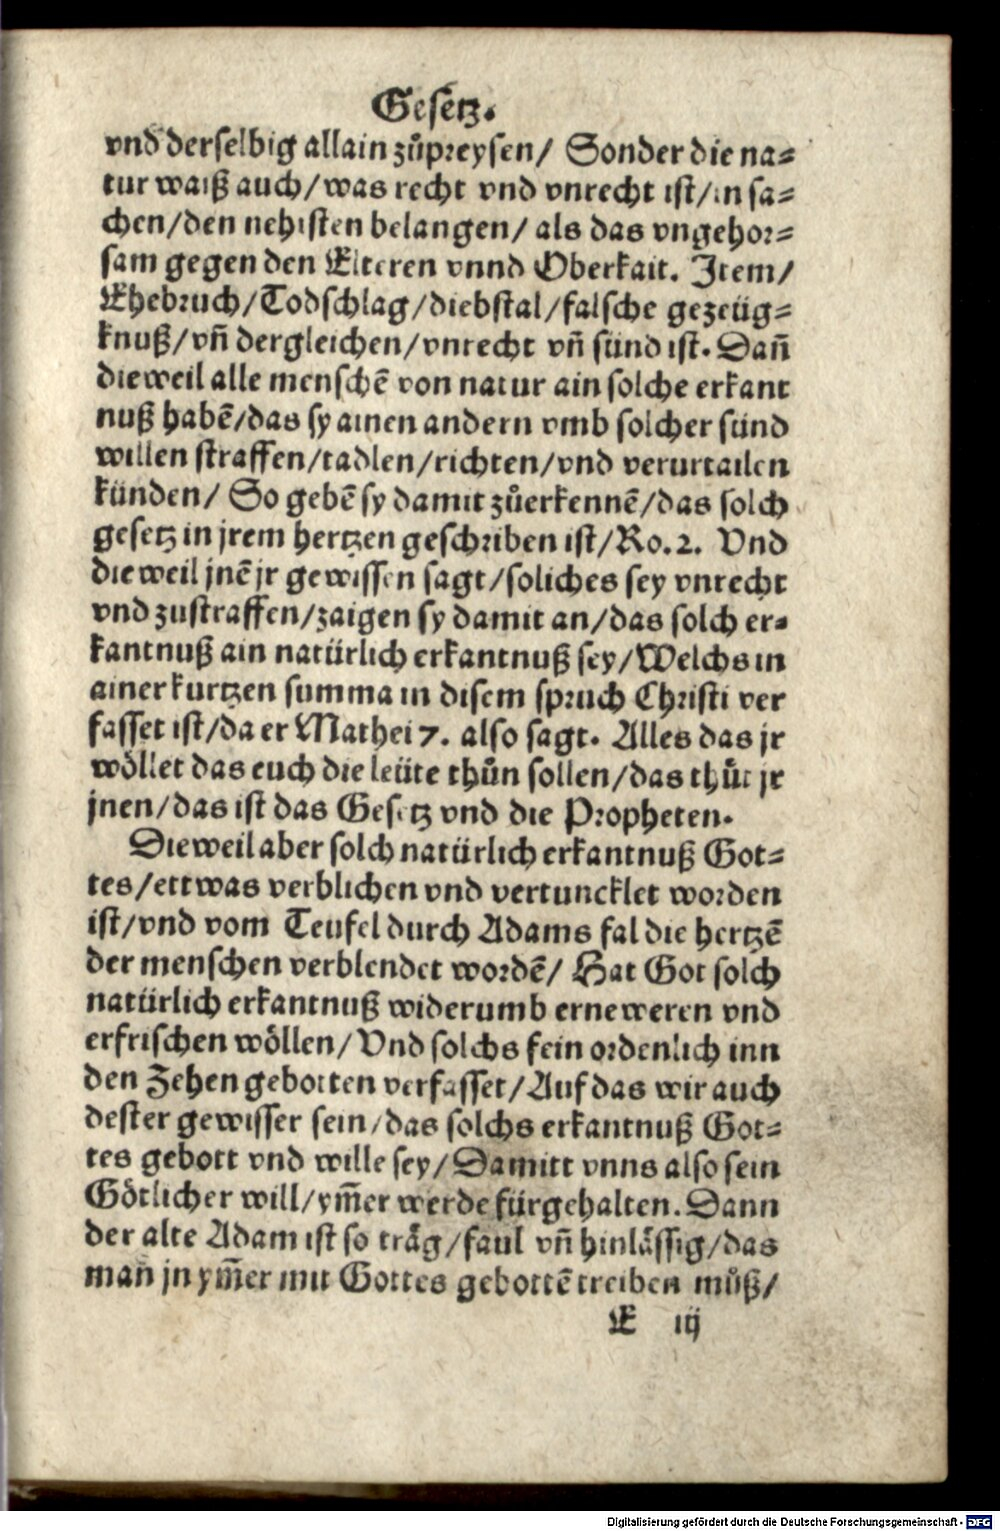 Gesetz.
vnd derselbig allain zůpreysen/ Sonder die na⸗
tur waiß auch/was recht vnd vnrecht ist/in sa⸗
chen/den nehisten belangen/ als das vngehor⸗
sam gegen den Elteren vnnd Oberkait. Item/
Ehebruch/Todschlag/diebstal/falsche gezeüg⸗
knuß/vñ dergleichen/vnrecht vñ sünd ist. Dañ
dieweil alle menschẽ von natur ain solche erkant
nuß habẽ/das sy ainen andern vmb solcher sünd
willen straffen/tadlen/richten/vnd verurtailen
künden/ So gebẽ sy damit zůerkennẽ/das solch
gesetz in jrem hertzen geschriben ist/Ro.2. Vnd
dieweil jnẽ jr gewissen sagt/soliches sey vnrecht
vnd zustraffen/zaigen sy damit an/das solch er⸗
kantnuß ain natürlich erkantnuß sey/Welchs in
ainer kurtzen summa in disem spruch Christi ver
fasset ist/da er Mathei 7. also sagt. Alles das jr
wöllet das euch die leüte thůn sollen/das thůt jr
jnen/das ist das Gesetz vnd die Propheten.
Dieweil aber solch natürlich erkantnuß Got⸗
tes/ettwas verblichen vnd vertuncklet worden
ist/vnd vom Teufel durch Adams fal die hertzẽ
der menschen verblendet wordẽ/ Hat Got solch
natürlich erkantnuß widerumb erneweren vnd
erfrischen wöllen/ Vnd solchs fein ordenlich inn
den Zehen gebotten verfasset/Auf das wir auch
dester gewisser sein/das solchs erkantnuß Got⸗
tes gebott vnd wille sey/Damitt vnns also sein
Götlicher will/ym̃er werde fürgehalten. Dann
der alte Adam ist so träg/faul vñ hinlässig/das
man jn ym̃er mit Gottes gebottẽ treiben můß/
E iij
Digitalisierung gefördert durch die Deutsche Forschungsgemeinschaft - DFG